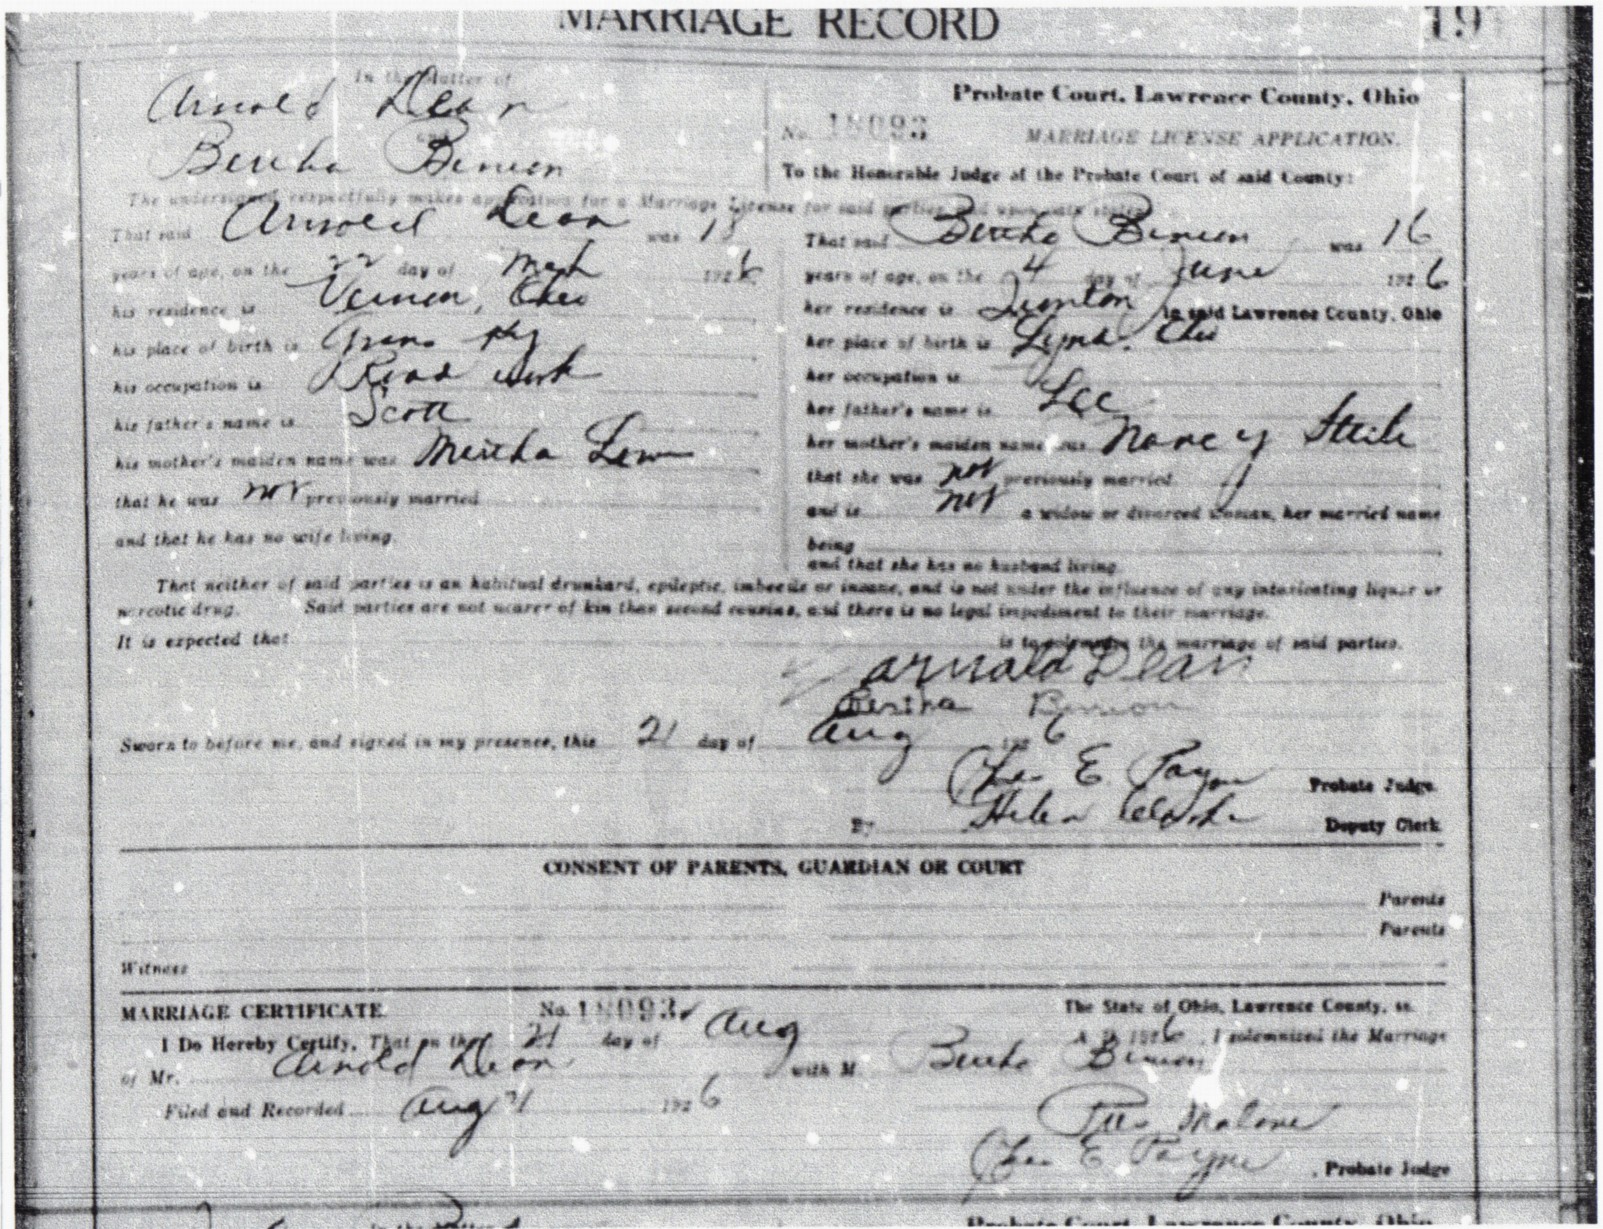 MARRIAGE RECORD
In the Matter of
Arnold Dean
and
Bertha Benion
Probate Court, Lawrence County, Ohio
No. 18093 MARRIAGE LICENSE APPLICATION.
To the Honorable Judge of the Probate Court of said County:
The undersigned respectfully makes application for a Marriage License for said parties, and upon oath states
That said Arnold Dean was 18
years of age, on the 22 day of Mch 1926
his residence is Vernon, Ohio
his place of birth is Ky
his occupation is Road work
his father's name is Scott
his mother's maiden name was
that he was not previously married
and that he has no wife living.
That said Bertha Benion was 16
years of age, on the 4 day of June 1926
her residence is in said Lawrence County, Ohio
her place of birth is Ohio
her occupation is
her father's name is Lee
her mother's maiden name was Nancy
that she was not previously married
and is not a widow or divorced woman, her married name
being
and that she has no husband living.
That neither of said parties is an habitual drunkard, epileptic, imbecile or insane, and is not under the influence of any intoxicating liquor or
narcotic drug. Said parties are not nearer of kin than second cousins, and there is no legal impediment to their marriage.
It is expected that is to solemnize the marriage of said parties.
Arnold Dean
Bertha Benion
Sworn to before me, and signed in my presence, this 21 day of Aug 1926
Chas E. Payne Probate Judge.
By Helen Clarke Deputy Clerk
CONSENT OF PARENTS, GUARDIAN OR COURT
Parents
Parents
Witness
MARRIAGE CERTIFICATE. No. 18093 The State of Ohio, Lawrence County, ss.
I Do Hereby Certify, That on the 21 day of Aug A. D. 1926, I solemnized the Marriage
of Mr. Arnold Dean with M Bertha Benion
Filed and Recorded Aug 21 1926
Malone
Chas E Payne, Probate Judge
Probate Court, Lawrence County, Ohio